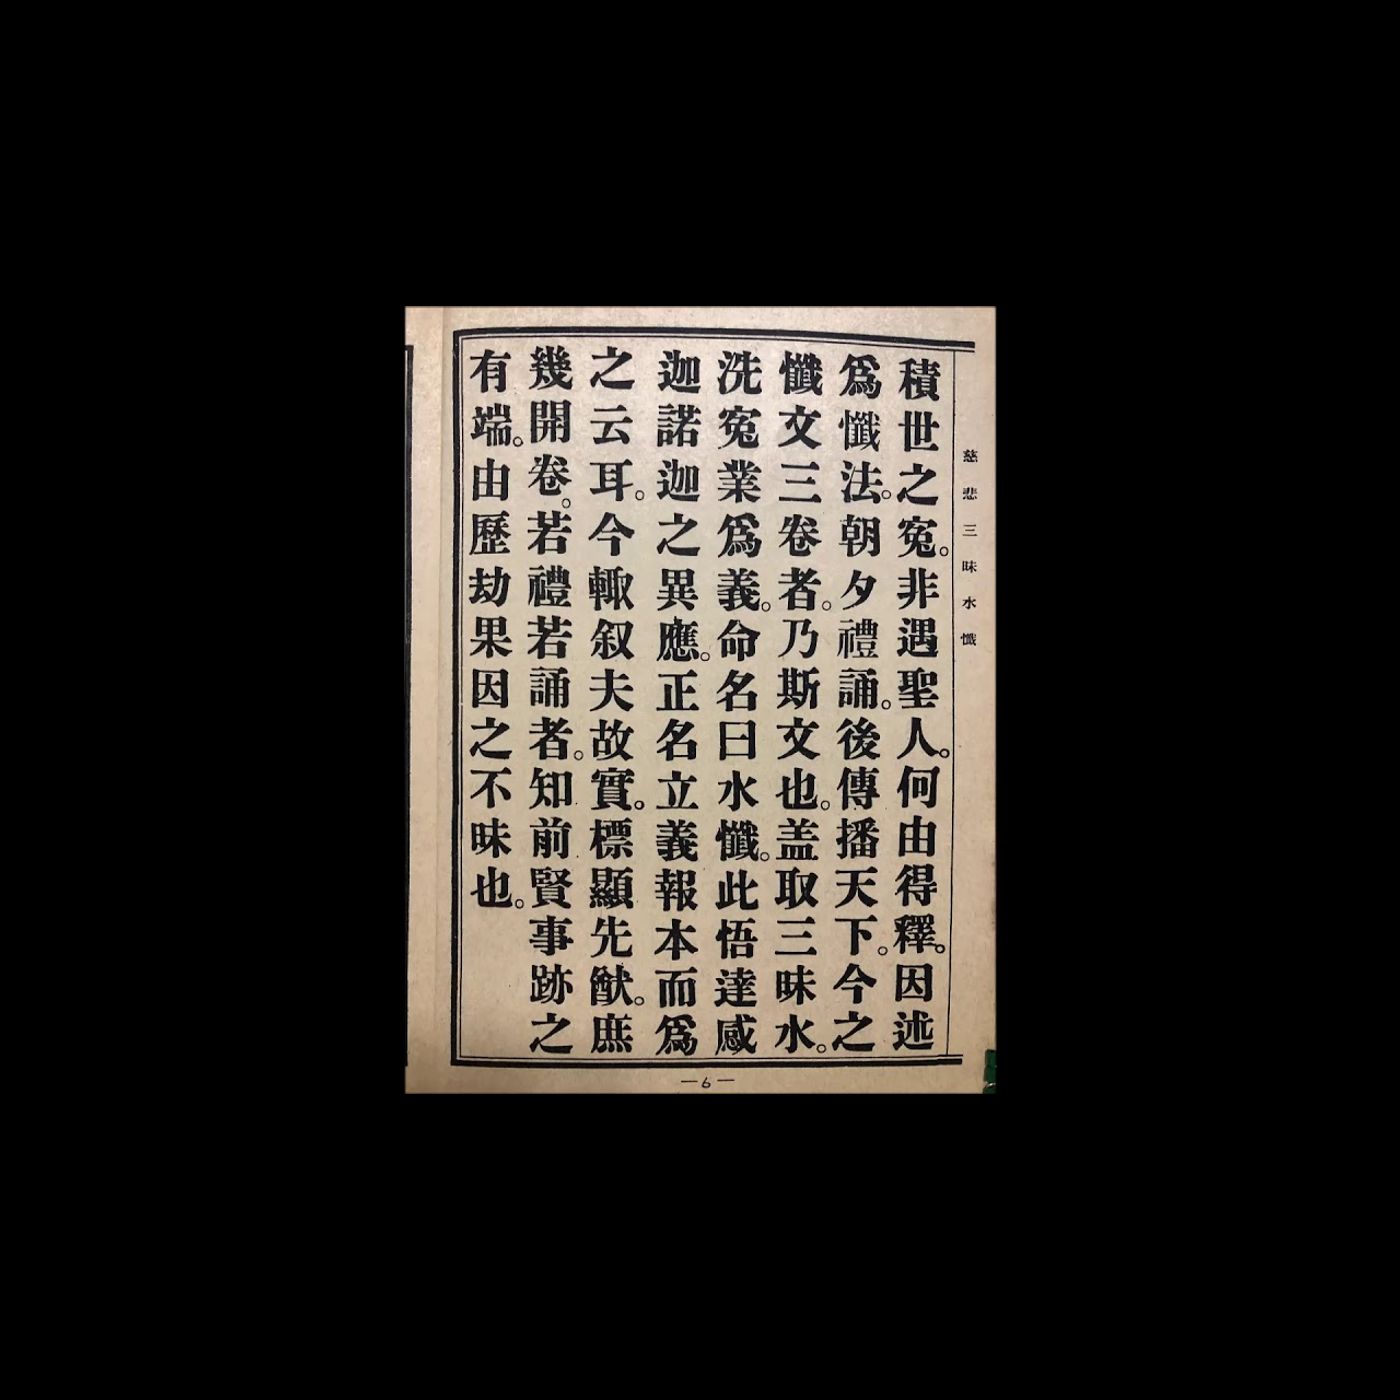 慈悲三昧水懺
積世之寃。非遇聖人。何由得釋。因述
爲懺法。朝夕禮誦。後傳播天下。今之
懺文三卷者。乃斯文也。盖取三昧水。
洗寃業爲義。命名曰水懺。此悟達感
迦諾迦之異應。正名立義報本而爲
之云耳。今輙叙夫故實。標顯先猷。庶
幾開卷。若禮若誦者。知前賢事跡之
有端。由歷劫果因之不昧也。
—6—